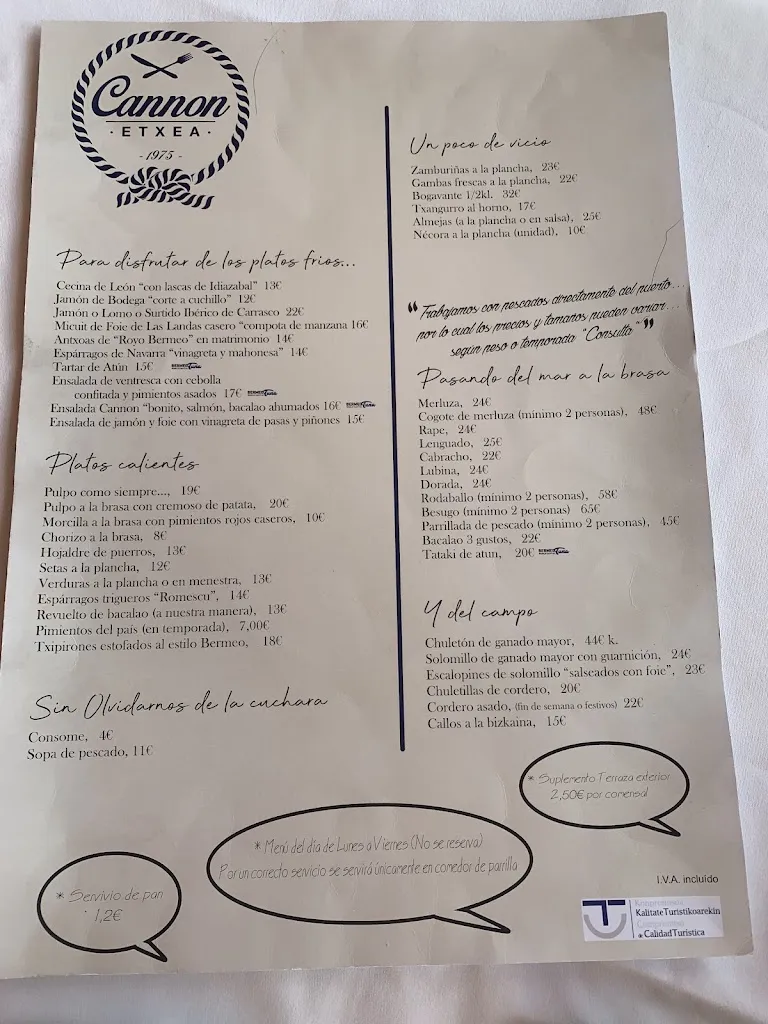 Cannon
· ETXEA ·
- 1975 -
Para disfrutar de los platos frios...
Cecina de León "con lascas de Idiazabal" 13€
Jamón de Bodega "corte a cuchillo" 12€
Jamón o Lomo o Surtido Ibérico de Carrasco 22€
Micuit de Foie de Las Landas casero "compota de manzana 16€
Antxoas de "Royo Bermeo" en matrimonio 14€
Espárragos de Navarra "vinagreta y mahonesa" 14€
Tartar de Atún 15€
Ensalada de ventresca con cebolla
confitada y pimientos asados 17€
Ensalada Cannon "bonito, salmón, bacalao ahumados 16€
Ensalada de jamón y foie con vinagreta de pasas y piñones 15€
Platos calientes
Pulpo como siempre..., 19€
Pulpo a la brasa con cremoso de patata, 20€
Morcilla a la brasa con pimientos rojos caseros, 10€
Chorizo a la brasa, 8€
Hojaldre de puerros, 13€
Setas a la plancha, 12€
Verduras a la plancha o en menestra, 13€
Espárragos trigueros "Romescu", 14€
Revuelto de bacalao (a nuestra manera), 13€
Pimientos del país (en temporada), 7,00€
Txipirones estofados al estilo Bermeo, 18€
Sin Olvidarnos de la cuchara
Consome, 4€
Sopa de pescado, 11€
Un poco de vicio
Zamburiñas a la plancha, 23€
Gambas frescas a la plancha, 22€
Bogavante 1/2kl. 32€
Txangurro al horno, 17€
Almejas (a la plancha o en salsa), 25€
Nécora a la plancha (unidad), 10€
"Trabajamos con pescados directamente del puerto...
por lo cual los precios y tamanos pueden variar...
según peso o temporada "Consulta""
Pasando del mar a la brasa
Merluza, 24€
Cogote de merluza (mínimo 2 personas), 48€
Rape, 24€
Lenguado, 25€
Cabracho, 22€
Lubina, 24€
Dorada, 24€
Rodaballo (mínimo 2 personas), 58€
Besugo (mínimo 2 personas) 65€
Parrillada de pescado (mínimo 2 personas), 45€
Bacalao 3 gustos, 22€
Tataki de atun, 20€
Y del campo
Chuletón de ganado mayor, 44€ k.
Solomillo de ganado mayor con guarnición, 24€
Escalopines de solomillo "salseados con foie", 23€
Chuletillas de cordero, 20€
Cordero asado, (fin de semana o festivos) 22€
Callos a la bizkaina, 15€
* Suplemento Terraza exterior
2,50€ por comensal
* Menú del día de Lunes a Viernes (No se reserva)
Por un correcto servicio se servirá únicamente en comedor de parrilla
* Servivio de pan
1,2€
I.V.A. incluído
Kalitate Turistikoarekin
Calidad Turistica